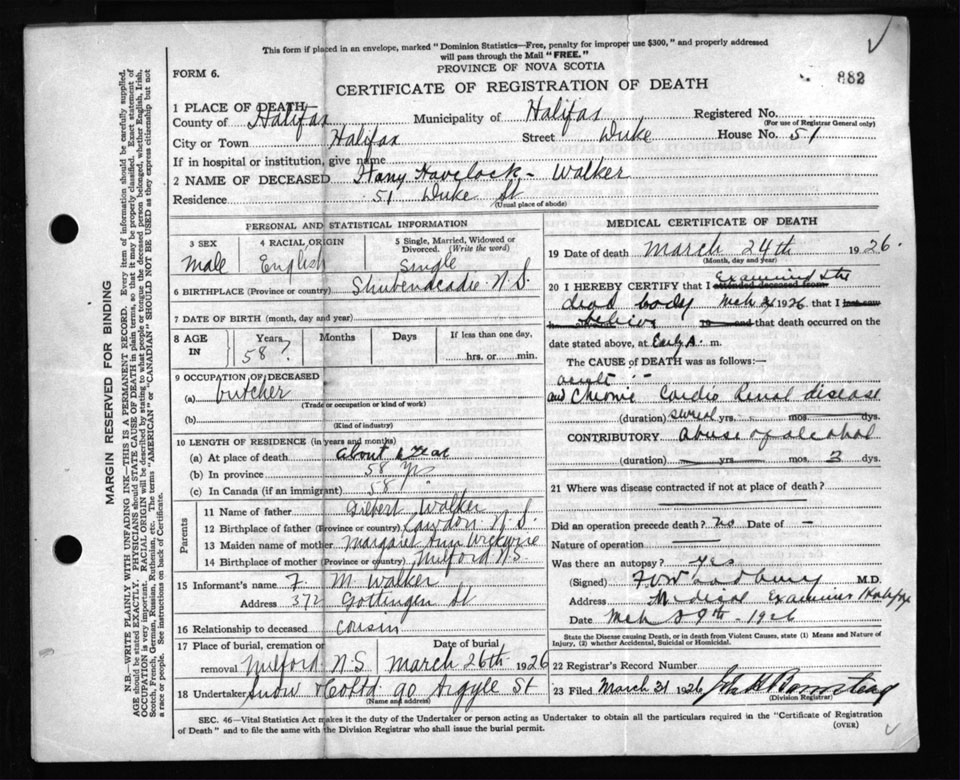 This form if placed in an envelope, marked "Dominion Statistics—Free, penalty for improper use $300," and properly addressed
will pass through the Mail "FREE."
PROVINCE OF NOVA SCOTIA
FORM 6.
CERTIFICATE OF REGISTRATION OF DEATH
882
1 PLACE OF DEATH
County of Halifax Municipality of Halifax Registered No.
(For use of Registrar General only)
City or Town Halifax Street Duke House No. 51
If in hospital or institution, give name
2 NAME OF DECEASED Harry Havelock - Walker
Residence 51 Duke St
(Usual place of abode)
PERSONAL AND STATISTICAL INFORMATION
3 SEX 4 RACIAL ORIGIN 5 Single, Married, Widowed or
Divorced. (Write the word)
Male English Single
6 BIRTHPLACE (Province or country) Shubenacadie N.S.
7 DATE OF BIRTH (month, day and year)
8 AGE IN Years Months Days If less than one day,
58? hrs. or min.
9 OCCUPATION OF DECEASED
(a) butcher
(Trade or occupation or kind of work)
(b)
(Kind of industry)
10 LENGTH OF RESIDENCE (in years and months)
(a) At place of death about a year
(b) In province 58 yrs
(c) In Canada (if an immigrant) 58
Parents
11 Name of father Gilbert Walker
12 Birthplace of father (Province or country) N.S.
13 Maiden name of mother Margaret Ann
14 Birthplace of mother (Province or country) Milford N.S.
15 Informant's name F. M. Walker
Address 372 Gottingen St
16 Relationship to deceased cousin
17 Place of burial, cremation or Date of burial
removal Milford N.S March 26th 1926
18 Undertaker Snow & Co Ltd 90 Argyle St
(Name and address)
MEDICAL CERTIFICATE OF DEATH
19 Date of death March 24th 1926.
(Month, day and year)
Examined the
20 I HEREBY CERTIFY that I attended deceased from
dead body Mch 1926 that I last saw
that death occurred on the
date stated above, at Early A. m.
The CAUSE of DEATH was as follows:—
and Chronic Cardio Renal disease
(duration) yrs. mos. dys.
CONTRIBUTORY Abuse of alcohol
(duration) yrs. mos. 3 dys.
21 Where was disease contracted if not at place of death?
Did an operation precede death? No Date of —
Nature of operation
Was there an autopsy? Yes
(Signed) M.D.
Address Medical Examiner Halifax
Date Mch 29th - 1926
State the Disease causing Death, or in death from Violent Causes, state (1) Means and Nature of
Injury, (2) whether Accidental, Suicidal or Homicidal.
22 Registrar's Record Number
23 Filed March 31 1926
(Division Registrar)
SEC. 46—Vital Statistics Act makes it the duty of the Undertaker or person acting as Undertaker to obtain all the particulars required in the "Certificate of Registration
of Death" and to file the same with the Division Registrar who shall issue the burial permit.
(OVER)
MARGIN RESERVED FOR BINDING
N.B.—WRITE PLAINLY WITH UNFADING INK—THIS IS A PERMANENT RECORD. Every item of information should be carefully supplied.
AGE should be stated EXACTLY. PHYSICIANS should STATE CAUSE OF DEATH in plain terms, so that it may be properly classified. Exact statement of
OCCUPATION is very important. RACIAL ORIGIN will be described by stating to what people or tongue the deceased person belonged, whether English, Irish,
Scotch, French, German, Russian, Ruthenian, etc. The terms "AMERICAN" or "CANADIAN" SHOULD NOT BE USED as they express citizenship but not
a race or people. See instructions on back of Certificate.